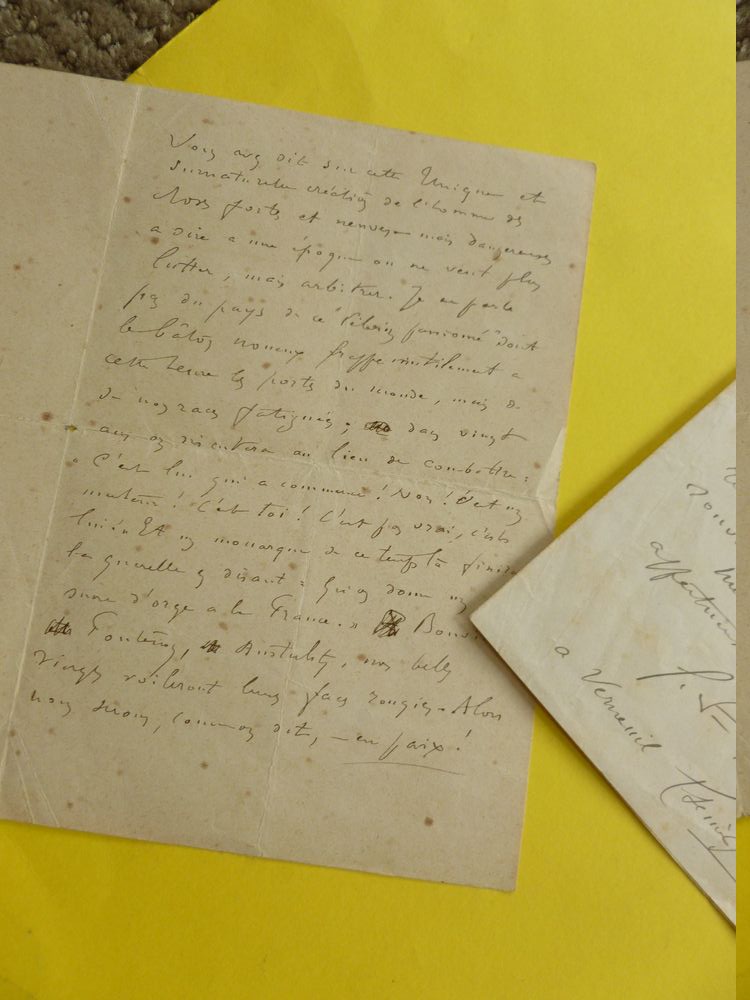 Vous avez dit sur cette Unique et
surnaturelle création de l'homme des
choses fortes et mais dangereuses
a dire a une époque ou on ne veut plus
lutter, mais arbitrer. Je ne parle
pas du pays de ce "Pèlerin passionné" dont
le bâton noueux frappe inutilement a
cette heure les portes du monde, mais de
de nos races fatiguées ; dans vingt
ans on discutera au lieu de combattre :
" C'est lui qui a commencé ! Non ! C'est un
menteur ! C'est toi ! C'est pas vrai, c'est
lui ! » Et un monarque de ce temps là finira
la querelle en disant : Qu'on donne un
sucre d'orge a la France. »
Fontenoy, Austerlitz, nos belles
vierges voileront leurs faces rougies. Alors
nous serons, comme on dit, — en paix !
affectueux
a Verneuil